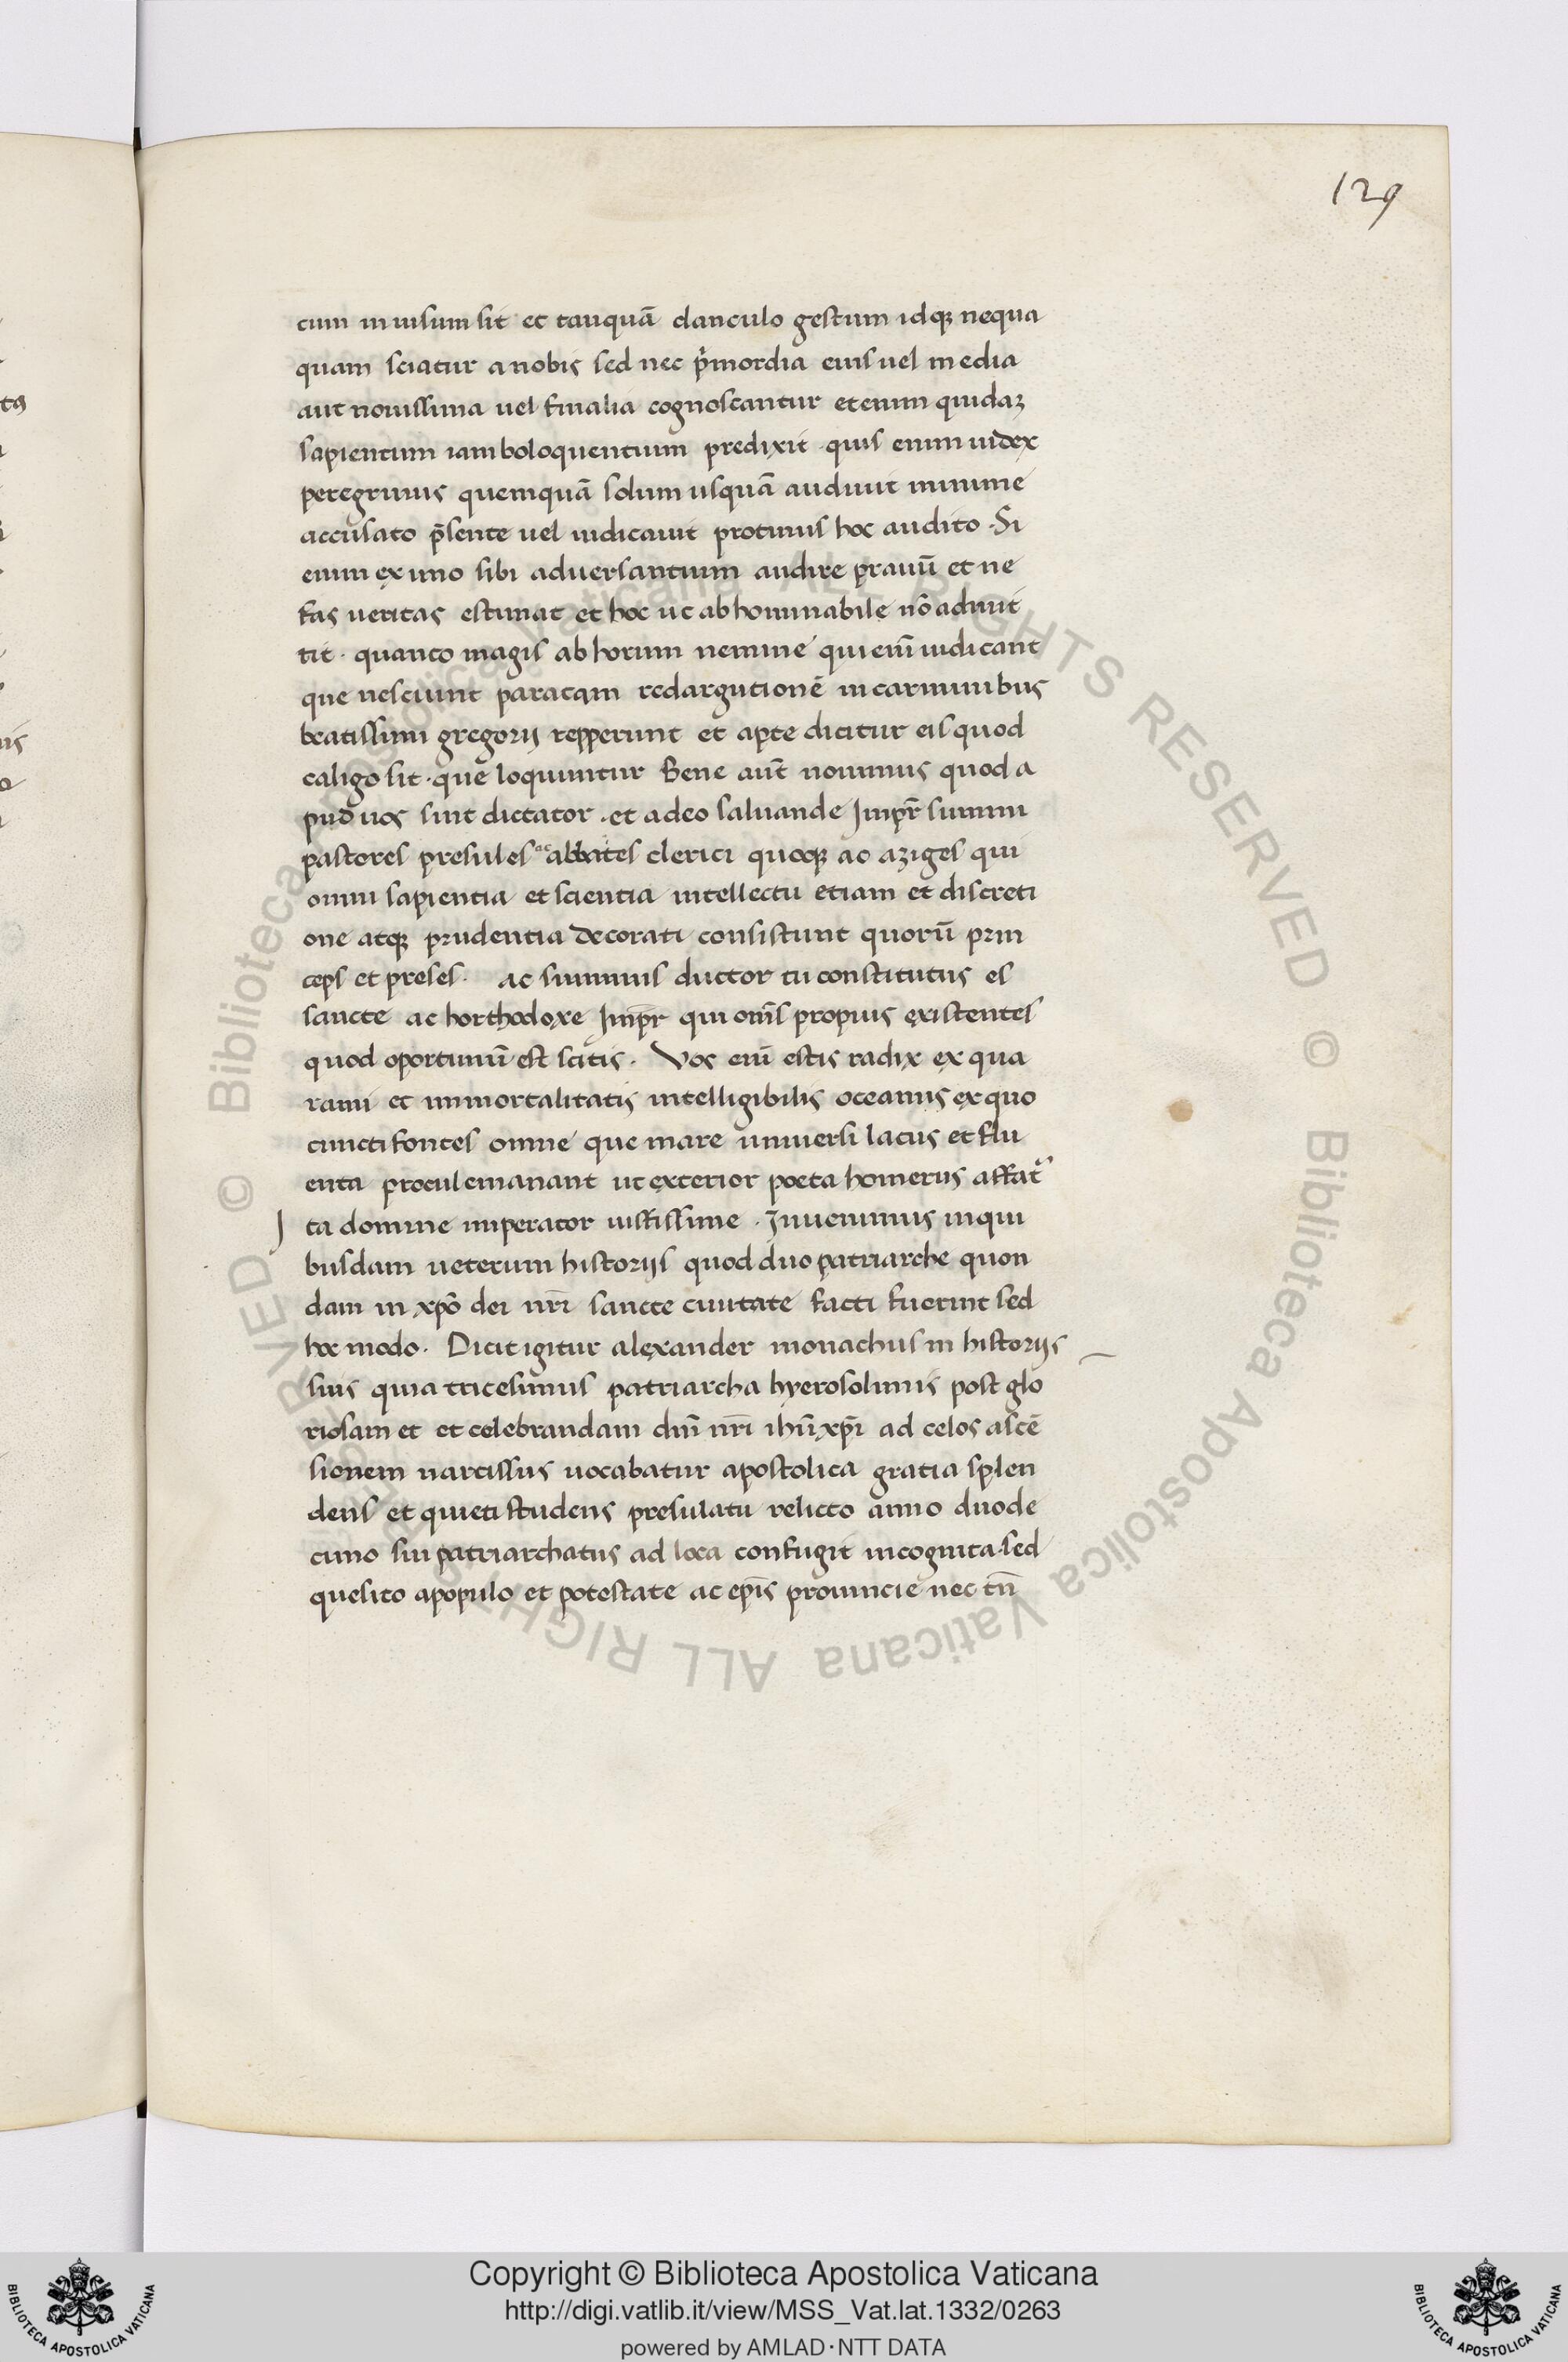 129
cum inuisum sit et tanquā clanculo gestum idqꝫ nequa
quam sciatur a nobis sed nec p̄mordia eius uel media
aut nouissima uel finalia cognoscantur etenim quidaꝫ
sapientum iamboloquentium predixit · quis enim iudex
peregrinus quemquā solum usquā audiuit minime
accusato p̄sente uel iudicauit protinus hoc audito · Si
enim ex uno sibi aduersantium audire prauū et ne
fas ueritas estimat et hoc ut abhominabile nō admit
tit · quanto magis ab horum nemine qui enī iudicant
que nesciunt paratam redargutionē in carminibus
beatissimi gregorij repperiunt et apte dicitur eis quod
caligo sit · quē loquuntur Bene aut̄ nouimus quod a
pud uos sint dictator · et a deo saluande Imp̄r summi
pastores presules ac abbates clerici quoqꝫ ac aziges qui
omni sapientia et scientia intellectu etiam et discreti
one atqꝫ prudentia decorati consistunt quorū prin
ceps et preses · ac summus ductor tu constitutus es
sancte ac horthodoxe Imp̄r qui om̄s propius existentes
quod oportunū est scitis · Vos enī estis radix ex qua
rami et immortalitatis intelligibilis oceanus ex quo
cuncti fontes omne que mare uniuersi lacus et flu
enta procul emanant ut exterior poeta homerus affat᷑
I ta domine imperator iustissime · Inuenimus in qui
busdam ueterum historijs quod duo patriarche quon
dam in xp̄o dei nr̄i sancte ciuitate facti fuerint sed
hoc modo · Dicit igitur alexander monachus in historijs
suis quia tricesimus patriarcha hyerosolimis post glo
riosam et et celebrandam dn̄i nr̄i ihū xp̄i ad celos ascē
sionem narcissus uocabatur apostolica gratia splen
dens et quieti studens presulatu relicto anno duode
cimo sui patriarchatus ad loca confugit incognita · sed
quesito a populo et potestate ac ep̄is prouincie nec tn̄
Copyright © Biblioteca Apostolica Vaticana
http://digi.vatlib.it/view/MSS_Vat.lat.1332/0263
powered by AMLAD·NTT DATA